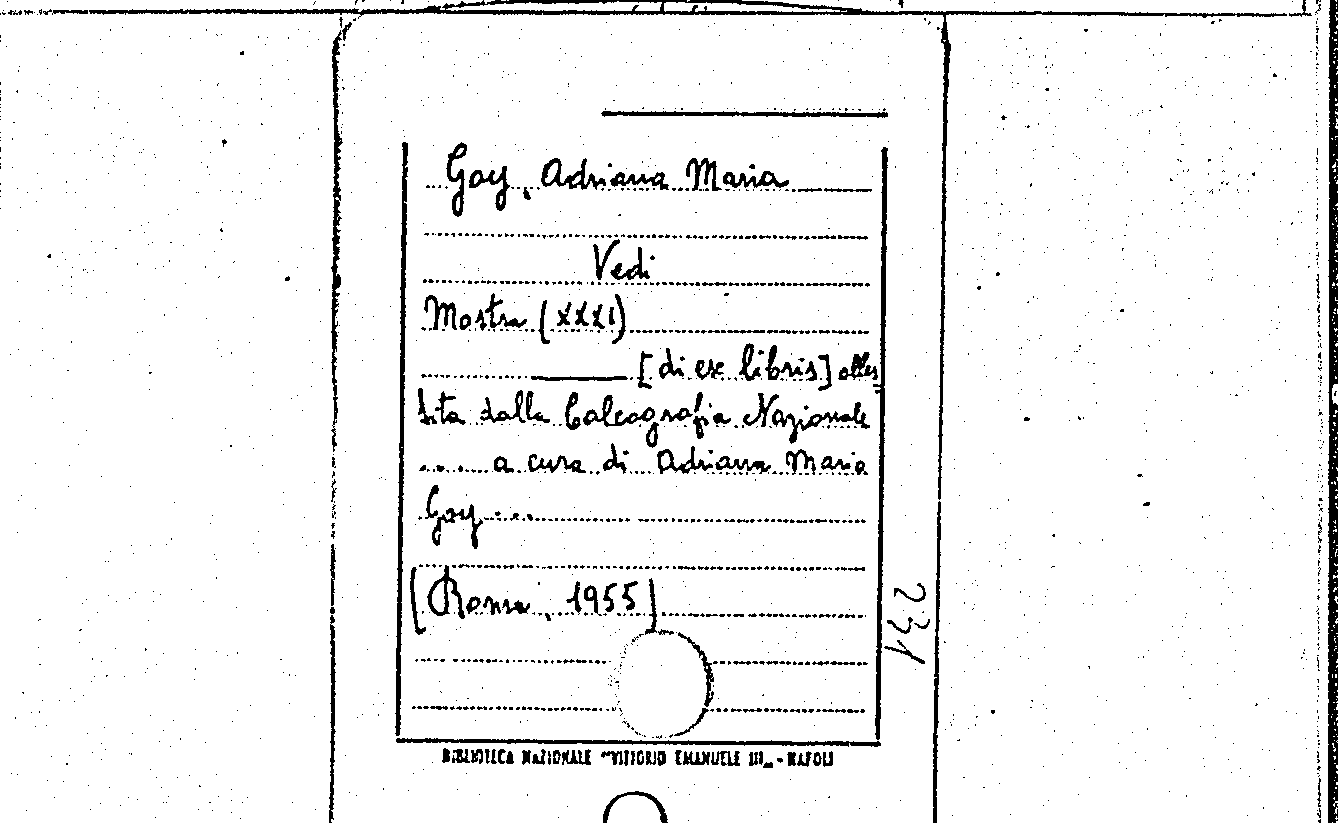 Gay, Adriana Maria
Vedi
Mostra (XXXI)
[di ex libris] alles
tita dalla Calcografia Nazionale
.... a cura di Adriana Maria
Gay ...
[Roma, 1955]
231
BIBLIOTECA NAZIONALE "VITTORIO EMANUELE III„ - NAPOLI